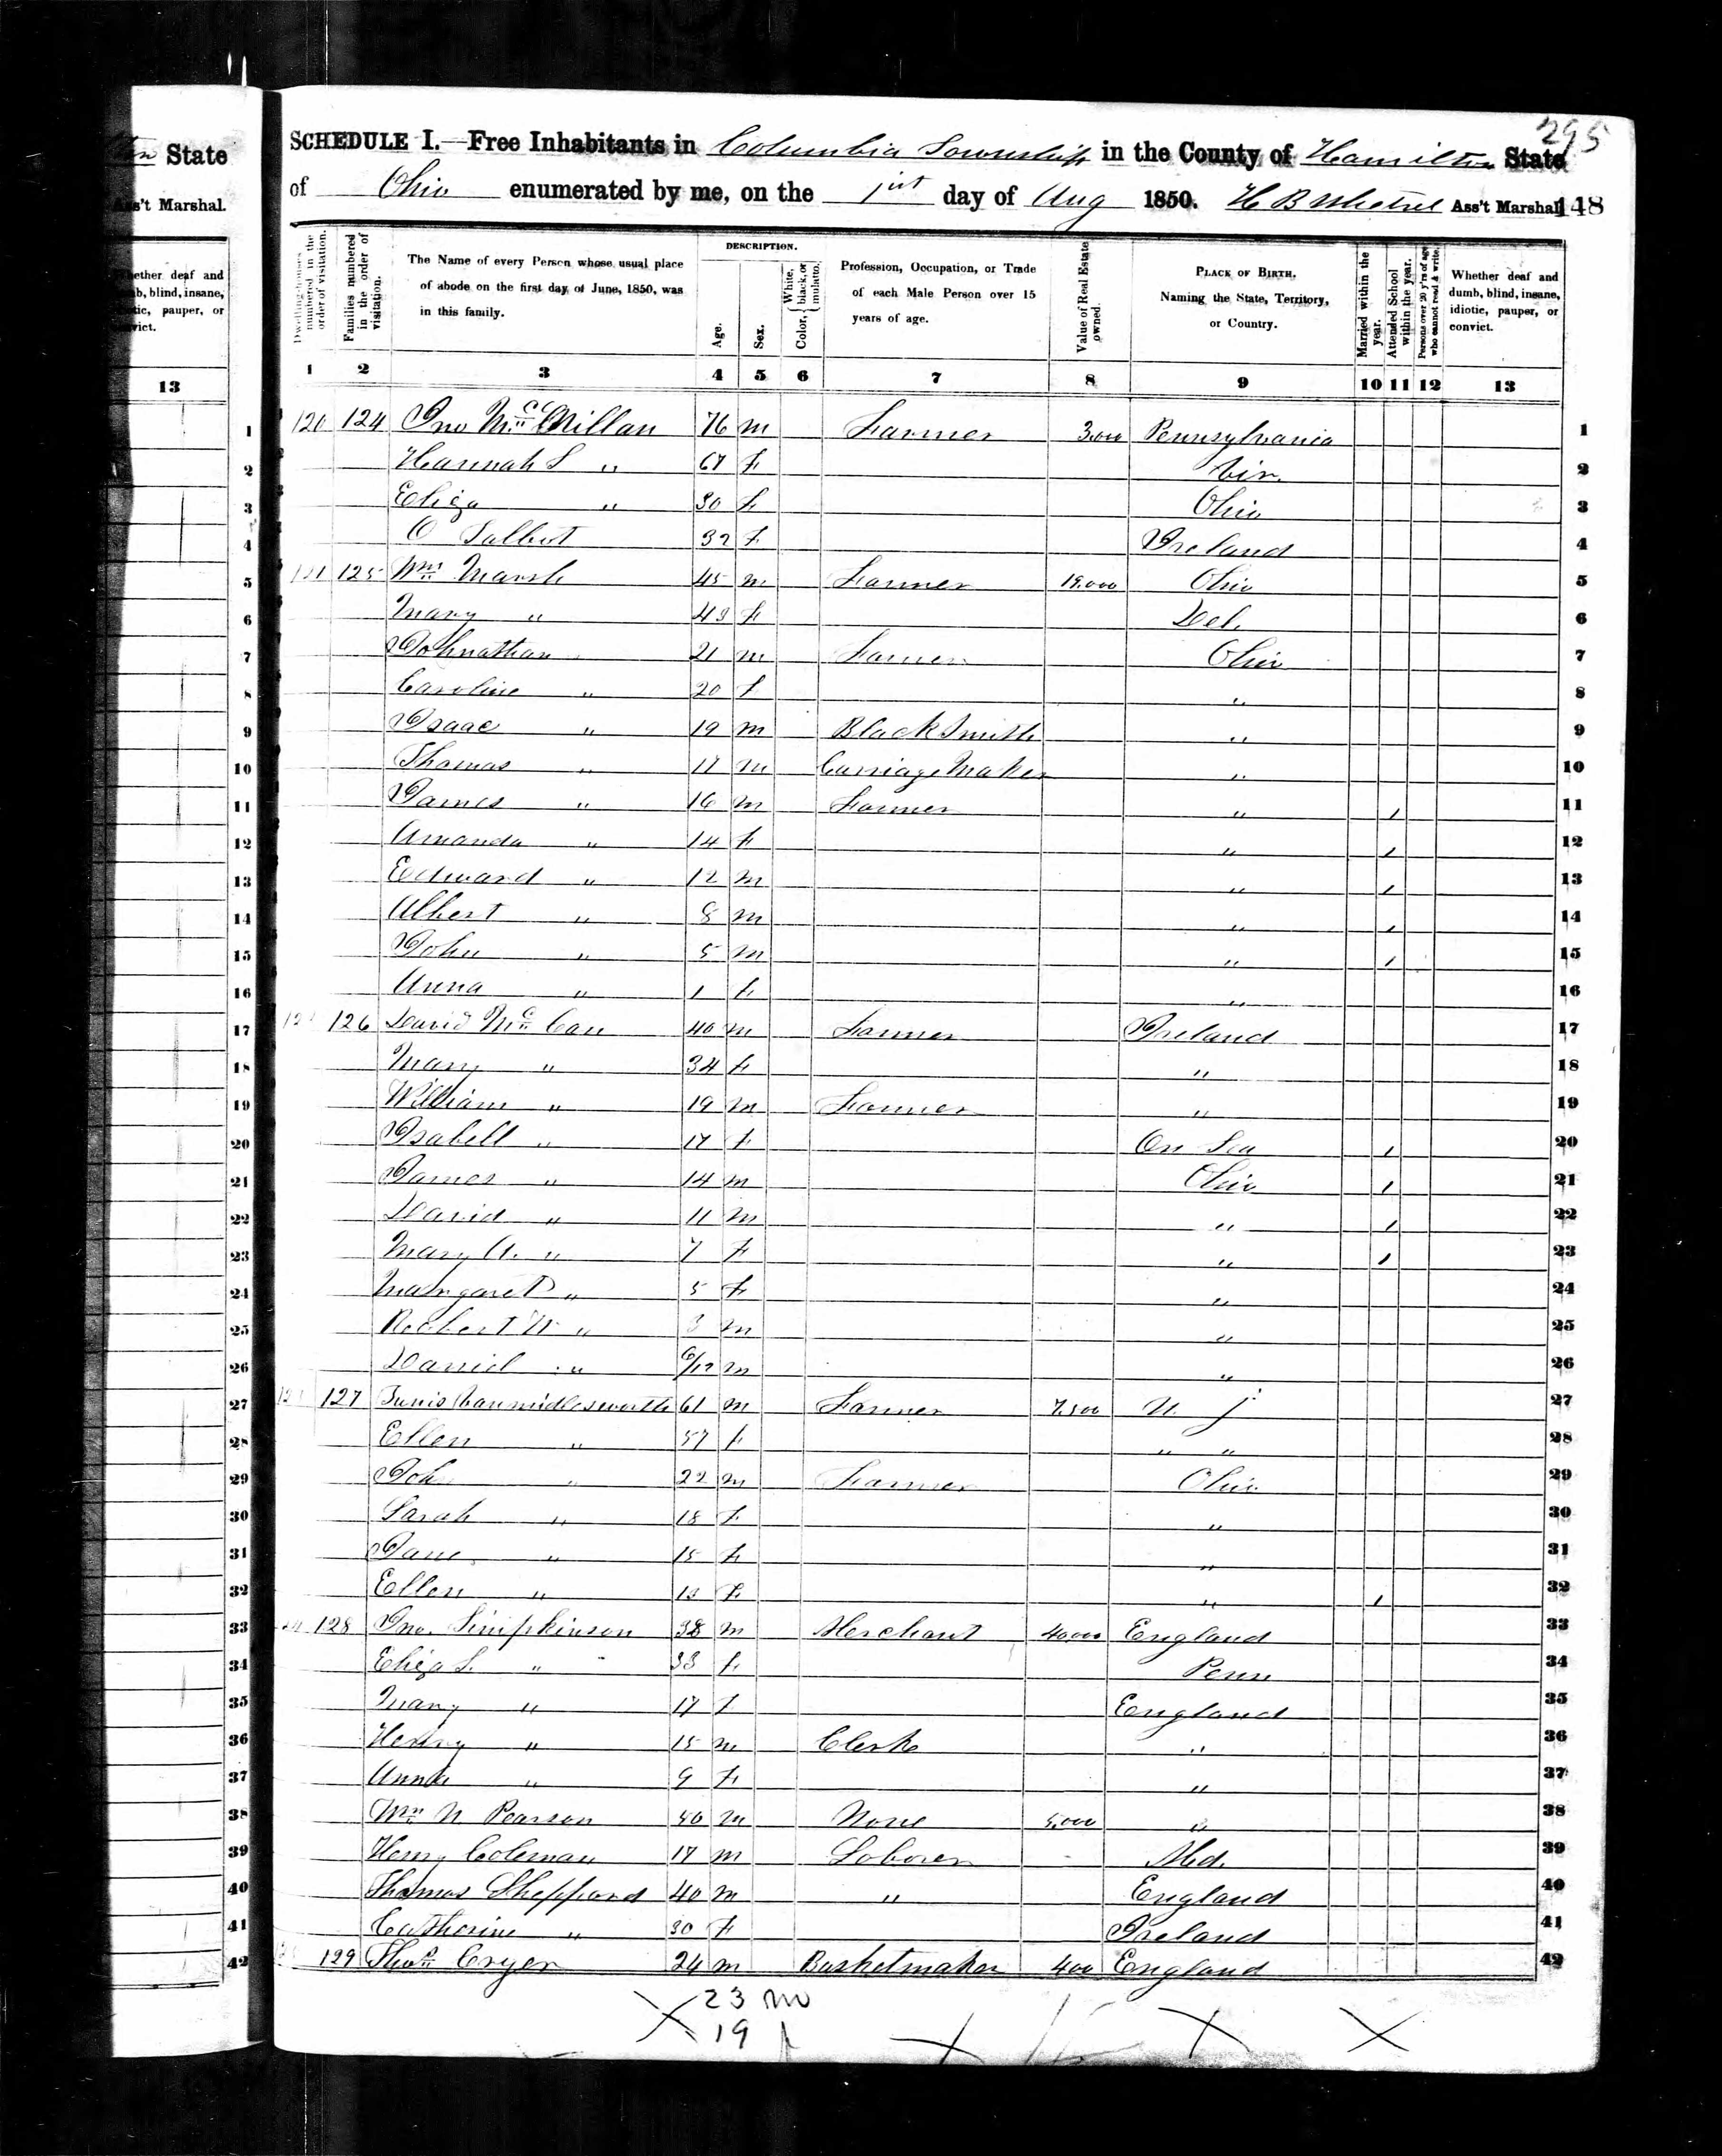 295
SCHEDULE I.—Free Inhabitants in Columbia Township in the County of Hamilton State
of Ohio enumerated by me, on the 1st day of Aug 1850. H B Ass't Marshal 148
State
Ass't Marshal.
Whether deaf and dumb, blind, insane, idiotic, pauper, or convict.
13
Dwelling-houses numbered in the order of visitation.
Families numbered in the order of visitation.
The Name of every Person whose usual place of abode on the first day of June, 1850, was in this family.
DESCRIPTION.
Age.
Sex.
Color, { White, black, or mulatto.
Profession, Occupation, or Trade of each Male Person over 15 years of age.
Value of Real Estate owned.
PLACE OF BIRTH. Naming the State, Territory, or Country.
Married within the year.
Attended School within the year.
Persons over 20 y'rs of age who cannot read & write.
Whether deaf and dumb, blind, insane, idiotic, pauper, or convict.
1 2 3 4 5 6 7 8 9 10 11 12 13
1 120 124 Jno McMillan 76 m Farmer 3,000 Pennsylvania 1
2 Hannah S " 67 f Vir. 2
3 Eliza " 30 f Ohio 3
4 O Talbot 32 f Ireland 4
5 121 125 Wm Marsh 45 m Farmer 19,000 Ohio 5
6 Mary " 43 f Del. 6
7 Johnathan 21 m Farmer Ohio 7
8 Caroline " 20 f " 8
9 Isaac " 19 m BlackSmith " 9
10 Thomas " 17 m Carriage Maker " 10
11 James " 16 m Farmer " / 11
12 Amanda " 14 f " / 12
13 Edward " 12 m " / 13
14 Albert " 8 m " / 14
15 John " 5 m " / 15
16 Anna " 1 f " 16
17 126 David McCan 40 m Farmer Ireland 17
18 Mary " 34 f " 18
19 William " 19 m Farmer " 19
20 Isabell " 17 f On Sea / 20
21 James " 14 m Ohio / 21
22 David " 11 m " / 22
23 Mary A. " 7 f " / 23
24 Margaret " 5 f " 24
25 Robert W " 3 m " 25
26 Daniel " 6/12 m " 26
27 127 Tunis Vanmidlesworth 61 m Farmer 7,500 N J 27
28 Ellen " 57 f " " 28
29 Joh " 22 m Farmer Ohio 29
30 Sarah " 18 f " 30
31 Jane " 15 f " 31
32 Ellen " 13 f " / 32
33 128 Jno. Simpkinson 38 m Merchant 40,000 England 33
34 Eliza S. " 33 f Penn 34
35 Mary " 17 f England 35
36 Henry " 15 m Clerk " 36
37 Anna " 9 f " 37
38 Wm N Pearson 50 m None 5,000 " 38
39 Henry Coleman 17 m Laborer Md. 39
40 Thomas Sheppard 40 m " England 40
41 Catherine " 30 f Ireland 41
42 129 Thos Cryer 24 m Basketmaker 400 England 42
23 m
19 f